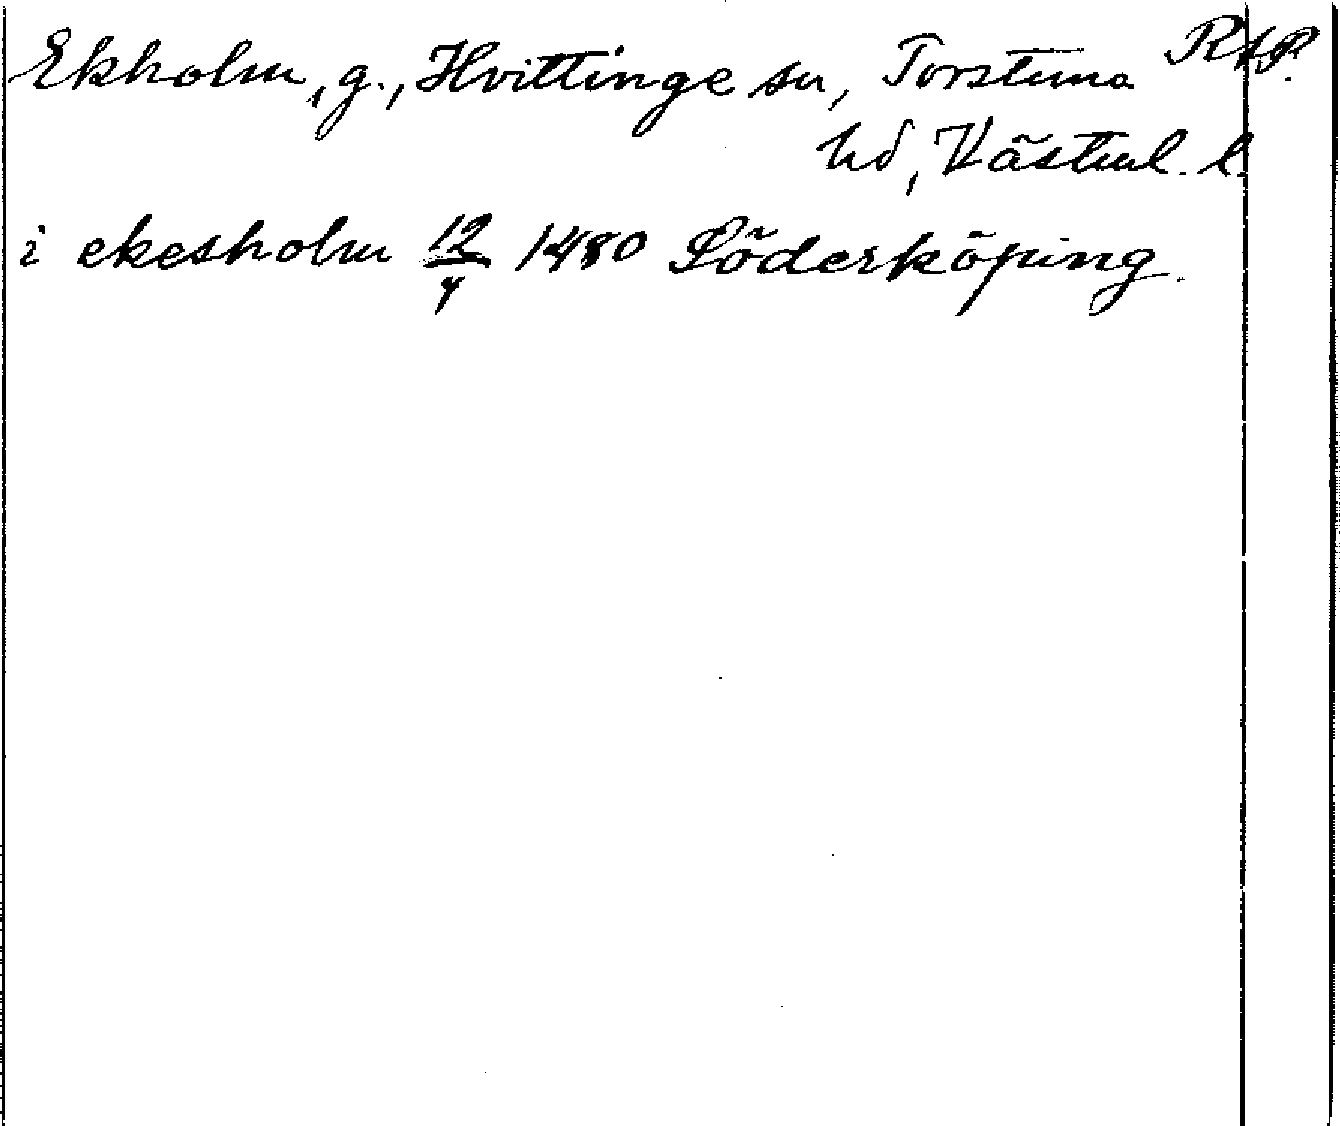 Ekholm, g., Hvittinge sn, Torstuna RAP.
hd, Västml. l.
i ekesholm 12/4 1480 Söderköping.